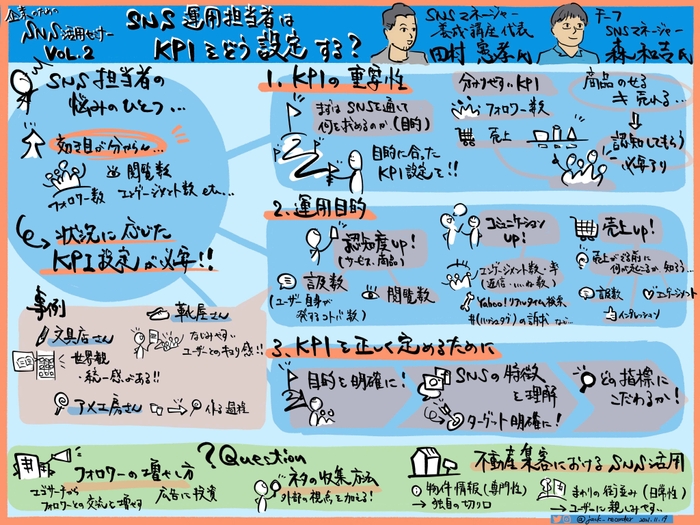 企業のための
SNS活用セミナー
VOL.2
SNS運用担当者は
KPIをどう設定する?
SNSマネージャー
養成講座代表
田村憲孝氏
チーフ
SNSマネージャー
森和吉氏
SNS担当者の
悩みのひとつ…
効果が分からん…
閲覧数
フォロワー数
エンゲージメント数 etc…
状況に応じた
KPI設定が必要!!
1. KPIの重要性
まずはSNSを通じて
何を求めるのか(目的)
目的に合った
KPI設定を!!
分かりやすいKPI
フォロワー数
売上
商品のせる
≠ 売れる…
認知してもらう
必要あり
2. 運用目的
認知度up!
(サービス、商品)
言及数
(ユーザー自身が
発するコトバ数)
閲覧数
コミュニケーション
up!
エンゲージメント数・率
(返信・いいね数)
Yahoo!リアルタイム検索
#(ハッシュタグ)の訴求 など…
売上up!
売上が出る前に
何が起こるか知ろう…
言及数
エンゲージメント
インプレッション
3. KPIを正しく定めるために
目的を明確に!
SNSの特徴
を理解
ターゲット明確に!
どの指標に
こだわるか!
事例
文具店さん
世界観
・統一感がある!!
靴屋さん
なじみやすい
ユーザーとのキョリ感!!
アメ工房さん
作る過程
?Question
フォロワーの増やし方
ユーザーから
フォロワーとの交流を増やす
広告に投資
ネタの収集方法
外部の視点を加える!
不動産集客におけるSNS活用
物件情報(専門性)
→独自の切り口
まわりの街並み(日常性)
→ユーザーに親しみやすい
@jack_recorder 2021.11.17